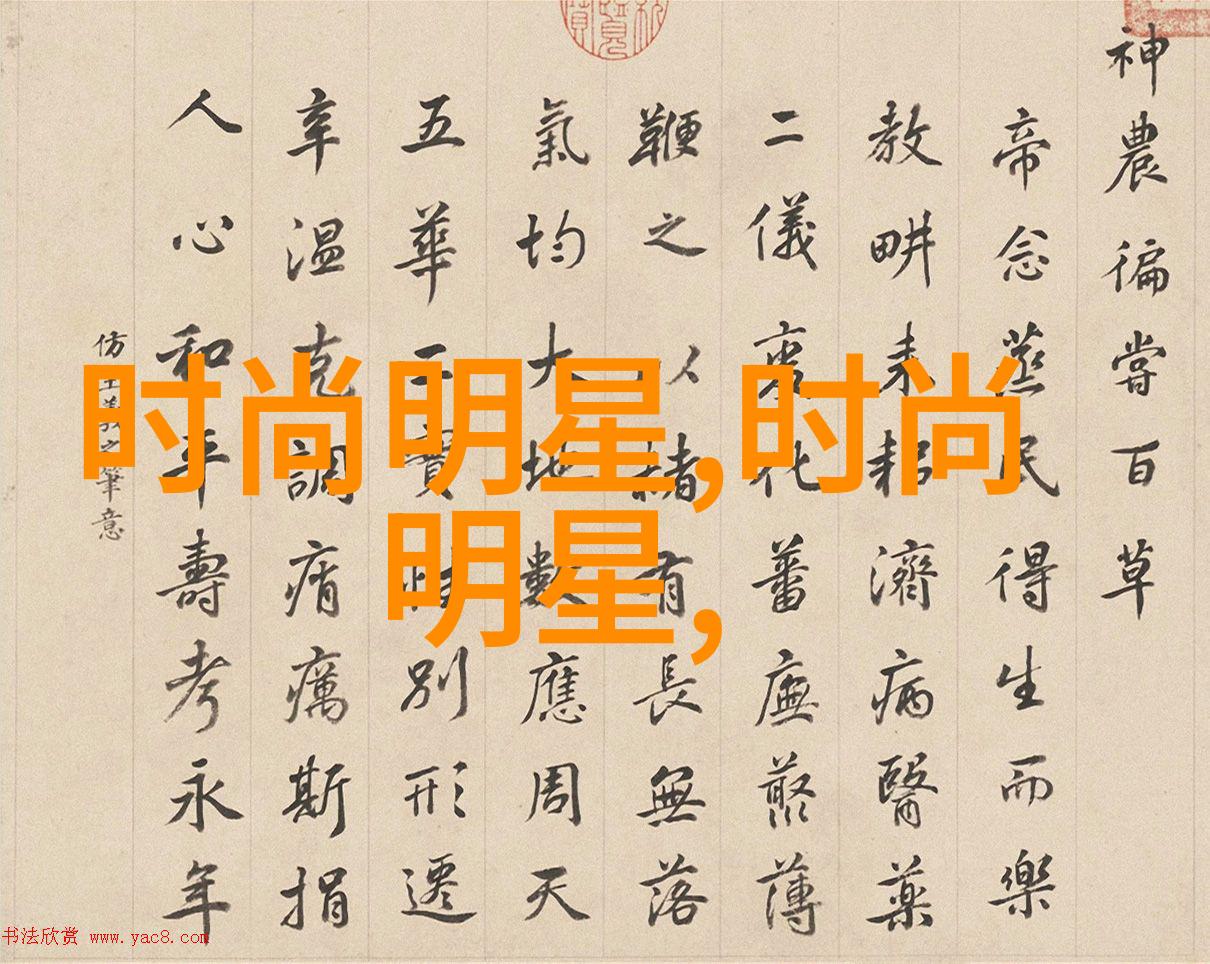 神農徧嘗百草
帝念蒸民得生而樂
教畊耒耜濟病醫藥
二儀變化蕃廡藂薄
鞭之以赭有長無落
氣均大地數應周天
五華寶別形遷
辛温克調痟癘斯捐
人心和平壽考永年
仿之筆意
时尚明星,时尚
明星,
书法欣赏 www.yac8.com